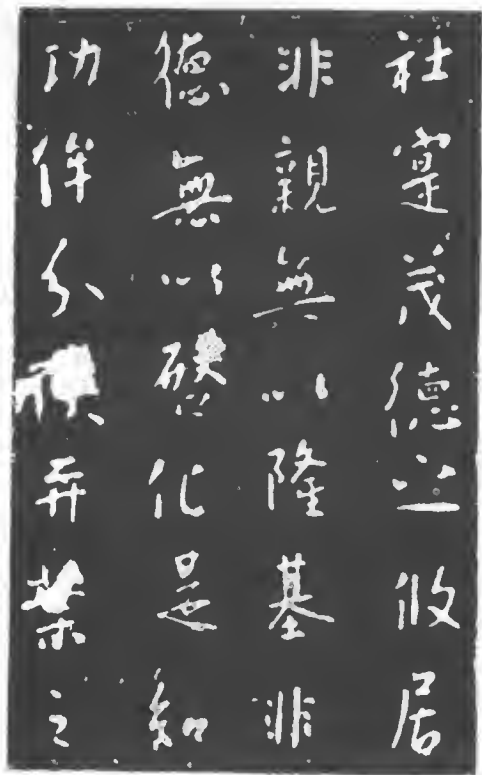 社寔茂德之攸居
非親無以隆基非
德無以啓化是知
功侔分弈葉之